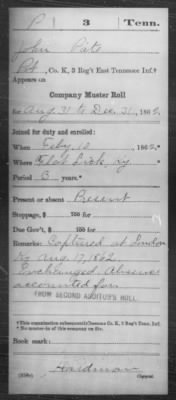 P | 3 | Tenn.
John Pate
Pvt, Co. K, 3 Reg't East Tennessee Inf.†
Appears on
Company Muster Roll
for Aug. 31 to Dec. 31, 1862.
Joined for duty and enrolled:
When Feby. 10, 1862.
Where Flat Lick, Ky
Period 3 years.
Present or absent Present
Stoppage, $ 100 for
Due Gov't, $ 100 for
Remarks: Captured at London
Ky Aug 17, 1862.
Exchanged. Absence
accounted for.
FROM SECOND AUDITOR'S ROLL.
†This organization subsequently became Co. K, 3 Reg't Tenn. Inf.
Book mark:
Hardman
(358c) Copyist.